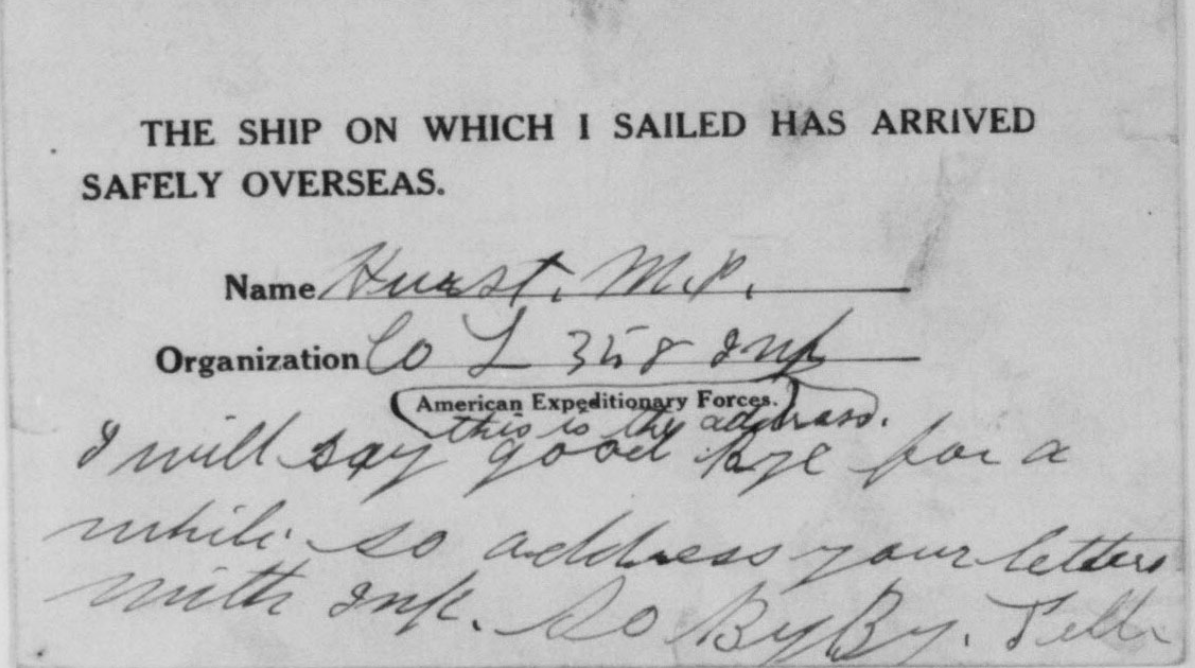 THE SHIP ON WHICH I SAILED HAS ARRIVED
SAFELY OVERSEAS.
Name Hurst. M.P.
Organization Co L 358 Inf
American Expeditionary Forces.
this is the address.
I will say good bye for a
while so address your letters
with Inf. So ByBy.